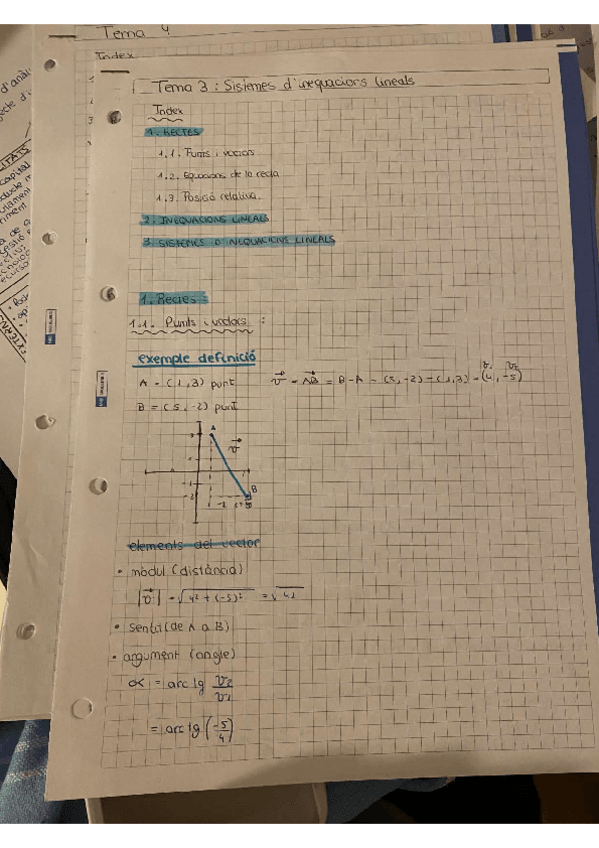 Tema 4
Index
Tema 3 : Sistemes d'inequacions lineals
Index
1. RECTES
1.1. Punts i vectors
1.2. Equacions de la recta
1.3. Posició relativa.
2. INEQUACIONS LINEALS
3. SISTEMES D'INEQUACIONS LINEALS
1. Rectes :
1.1. Punts i vectors :
exemple definició
A = (1,3) punt
B = (5,-2) punt
v = AB = B-A = (5,-2) - (1,3) = (4,-5)
v₁ v₂
A
v
B
elements del vector
• mòdul (distància)
|v| = √4² + (-5)² = √41
• sentit (de A a B)
• argument (angle)
α = arc tg v₂/v₁
= arc tg (-5/4)